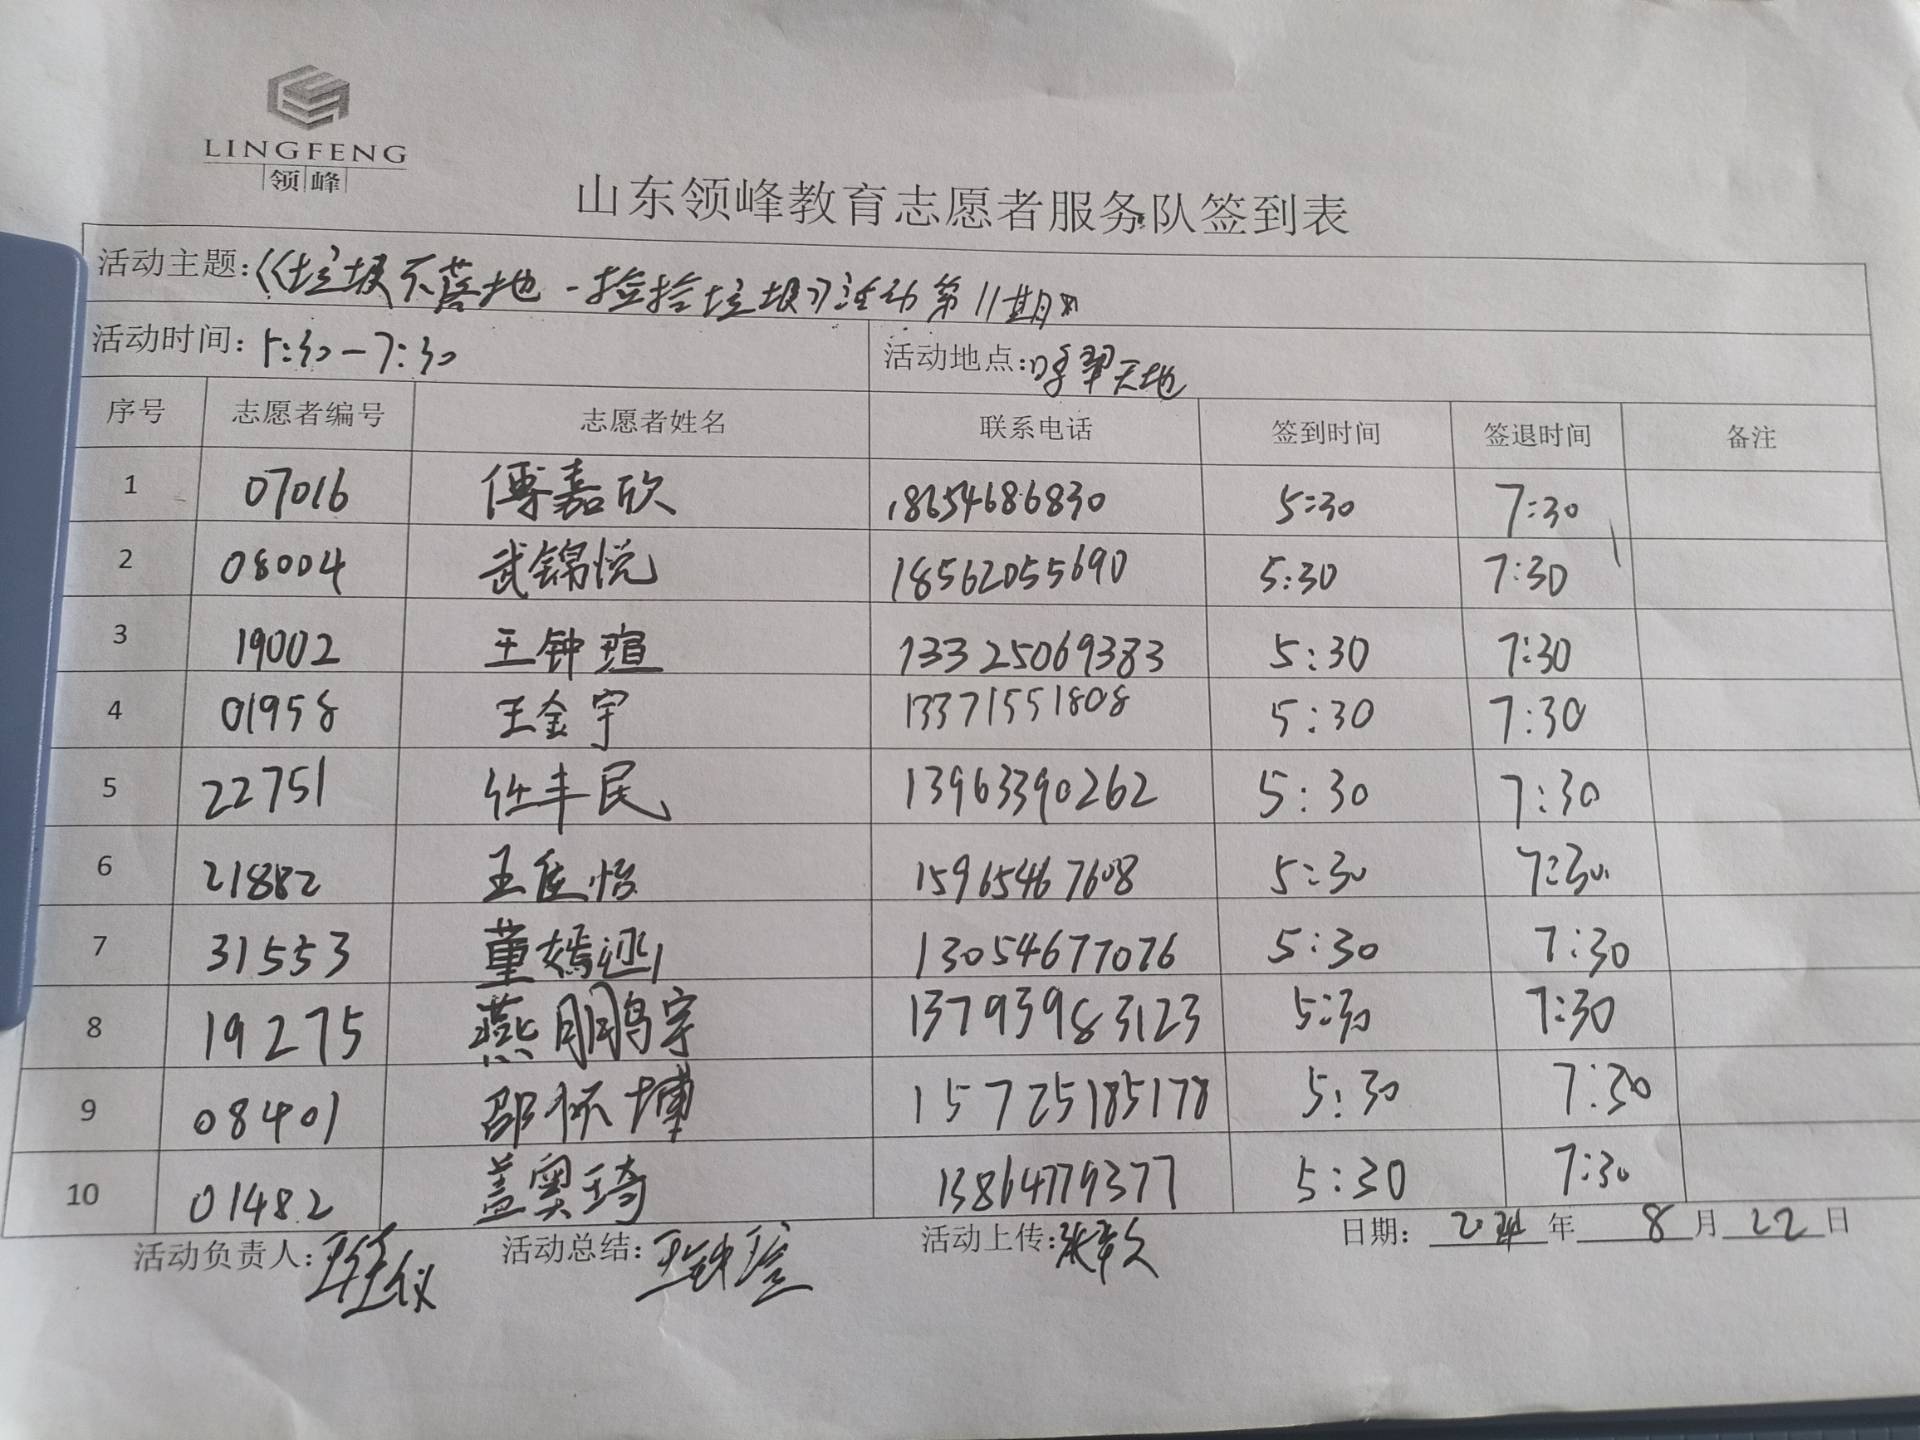 LINGFENG
领峰
山东领峰教育志愿者服务队签到表
活动主题:《垃圾不落地-捡拾垃圾》活动第11期
活动时间: 5:30-7:30 活动地点: 天地
序号 志愿者编号 志愿者姓名 联系电话 签到时间 签退时间 备注
1 07016 傅嘉欣 18654686830 5:30 7:30
2 08004 武锦悦 18562055690 5:30 7:30
3 19002 王钟瑄 13325069383 5:30 7:30
4 01958 王金宇 13371551808 5:30 7:30
5 22751 任丰民 13963390262 5:30 7:30
6 21882 王佳怡 15965467608 5:30 7:30
7 31553 董嫣 13054677076 5:30 7:30
8 19275 燕鹏宇 13793983123 5:30 7:30
9 08401 邵怀博 15725185178 5:30 7:30
10 01482 盖奥琦 13864779377 5:30 7:30
活动负责人: 活动总结: 王钟瑄 活动上传: 日期: 2024年 8月22日